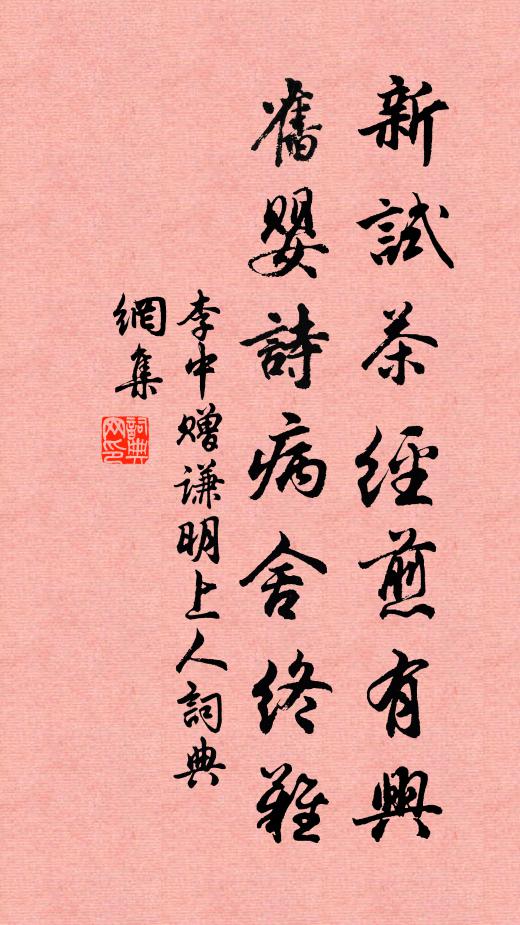 新試茶經煎有興
舊嬰詩病舍終難
李中贈謙明上人詞典
網集
詞典網印